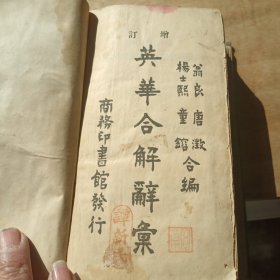 增訂
翁良 唐澂
楊士熙 童鎔 合編
英華合解辭彙
商務印書館發行